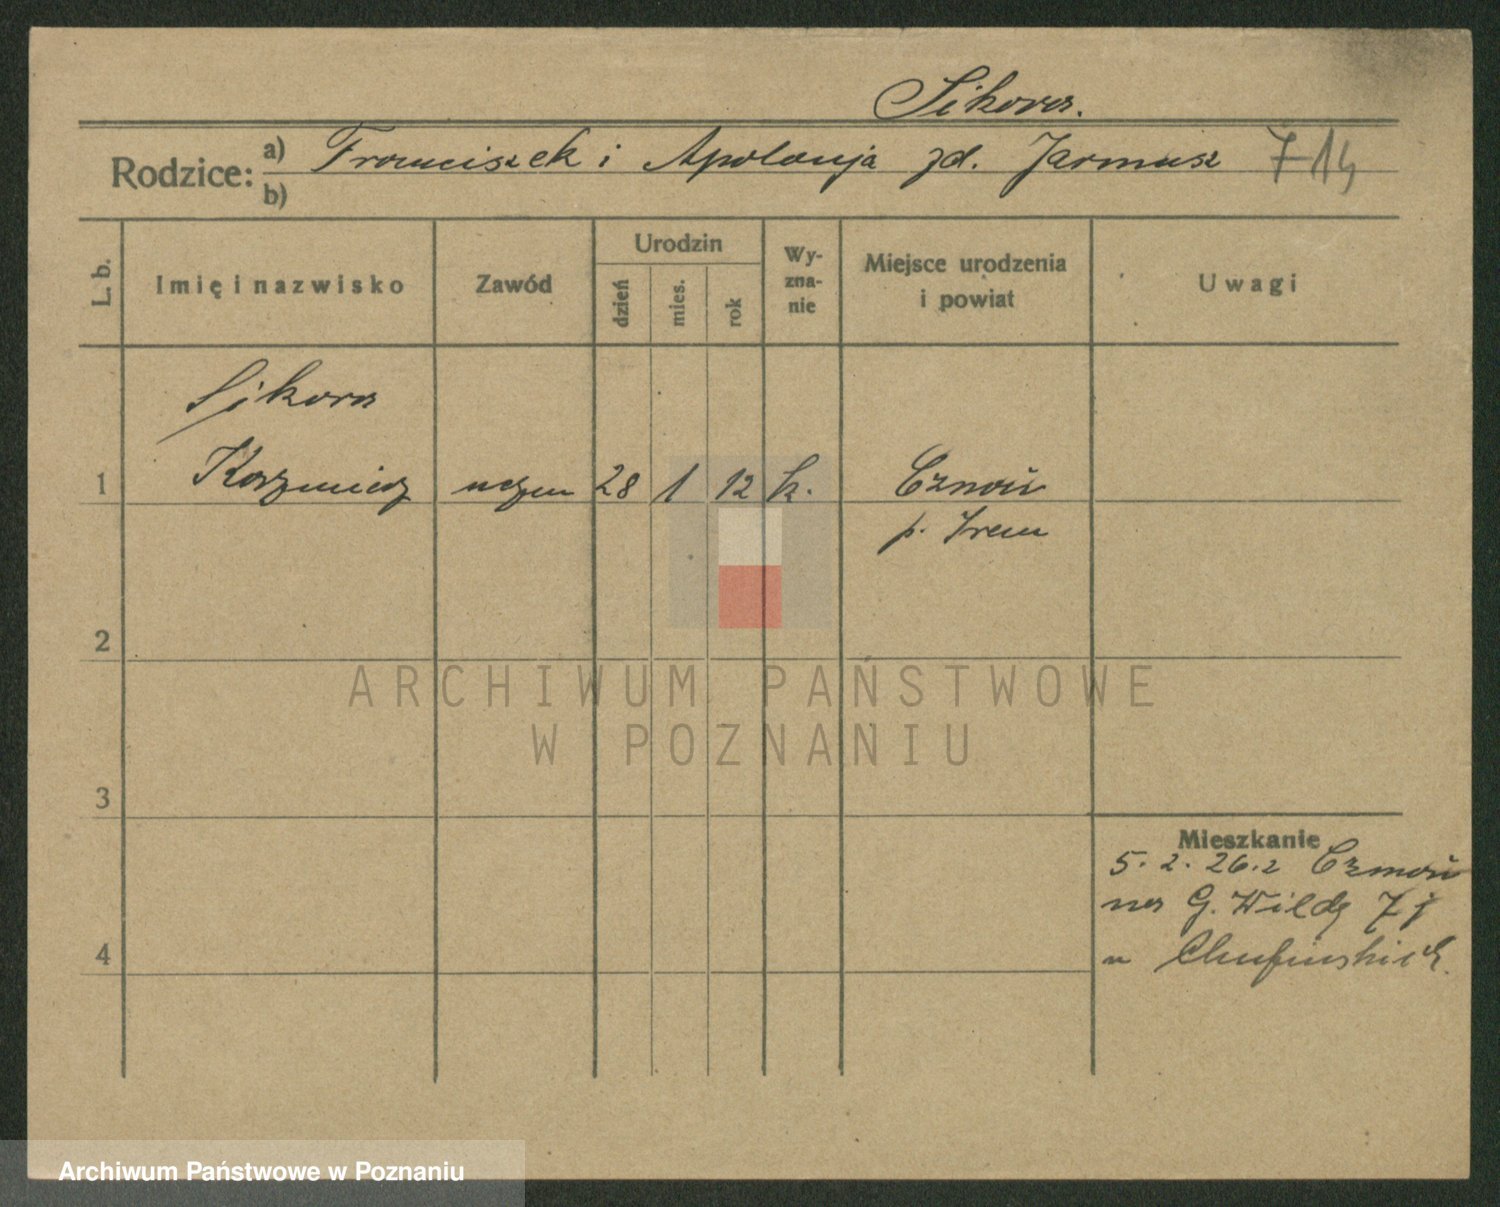 Sikora.
Rodzice: a) Franciszek i Apolonja zd. Jarmusz 7-14
b)
L. b. Imię i nazwisko Zawód Urodzin dzień mies. rok Wyzna-nie Miejsce urodzenia i powiat Uwagi
Sikora
1 Kazmierz uczeń 28 1 12 k. Czmoń
p. Śrem
2
ARCHIWUM PAŃSTWOWE
W POZNANIU
3
Mieszkanie
5. 2. 26. z Czmoń
na G. Wildę
4 u
Archiwum Państwowe w Poznaniu